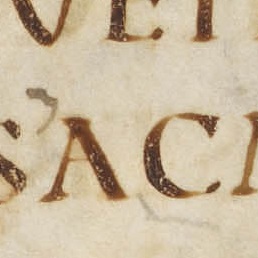 VET
SACR